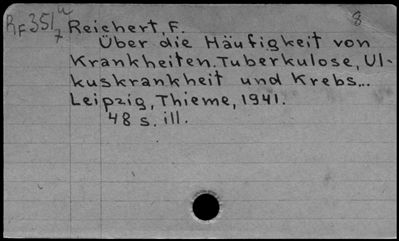 RF35/7u
8
Reichert, F.
Über die Häufigkeit von
Krankheiten. Tuberkulose, Ul-
kuskrankheit und Krebs...
Leipzig, Thieme, 1941.
48 s. ill.